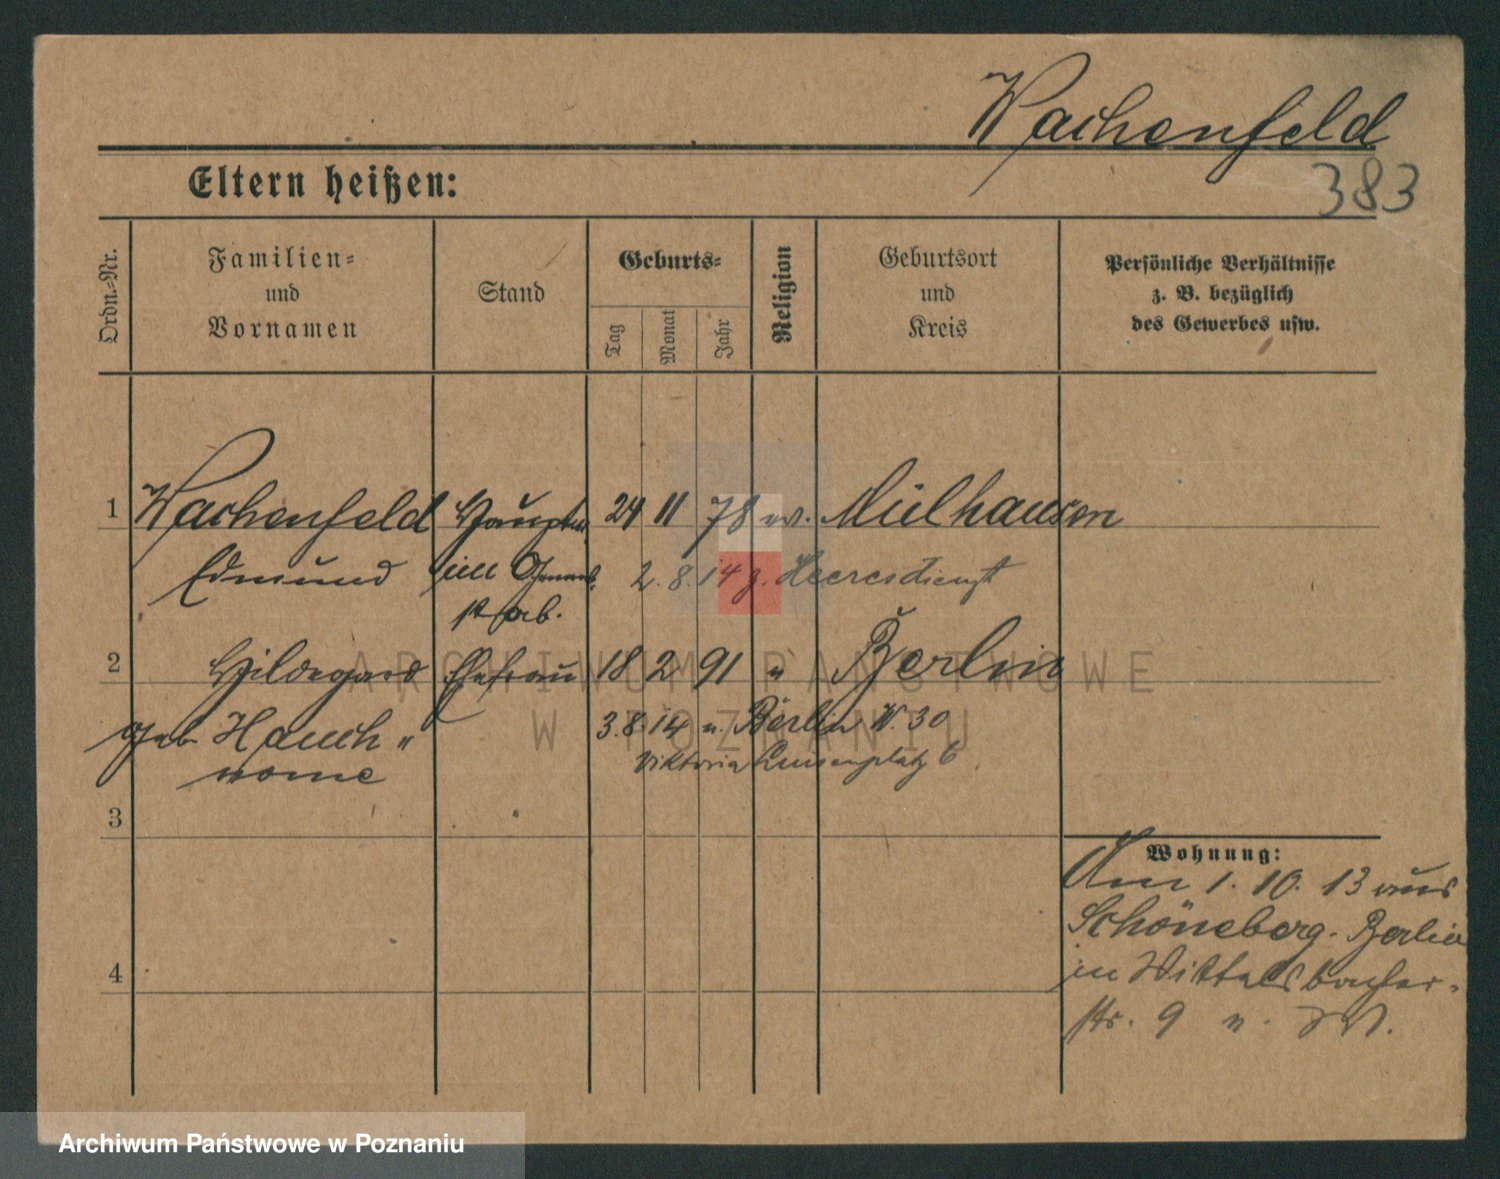 Wachenfeld
383
Eltern heißen:
Ordn.-Nr.
Familien-
und
Vornamen
Stand
Geburts-
Tag
Monat
Jahr
Religion
Geburtsort
und
Kreis
Persönliche Verhältnisse
z. B. bezüglich
des Gewerbes usw.
1 Wachenfeld Hauptm. 24 11 78 ev. Mülhausen
Edmund im General- 2. 8. 14 z. Heeresdienst
stab.
2 Hildegard Ehefrau 18 2 91 " Berlin
geb. Hauch 3. 8. 14 n. Berlin W. 30
Viktoria Luisenplatz 6
3
4
Wohnung:
Am 1. 10. 13 aus
Schöneberg-Berlin
in Wittelsbacher-
str. 9
ARCHIWUM PAŃSTWOWE
W POZNANIU
Archiwum Państwowe w Poznaniu